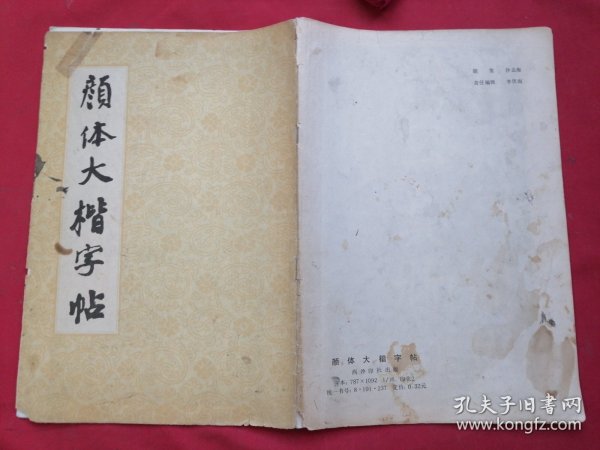 顔体大楷字帖
责任编辑
顔体大楷字帖
西泠印社出版
开本：787×1092 1/
统一书号：8·191·237 定价：0.32元
孔夫子旧书网
www.kongfz.com